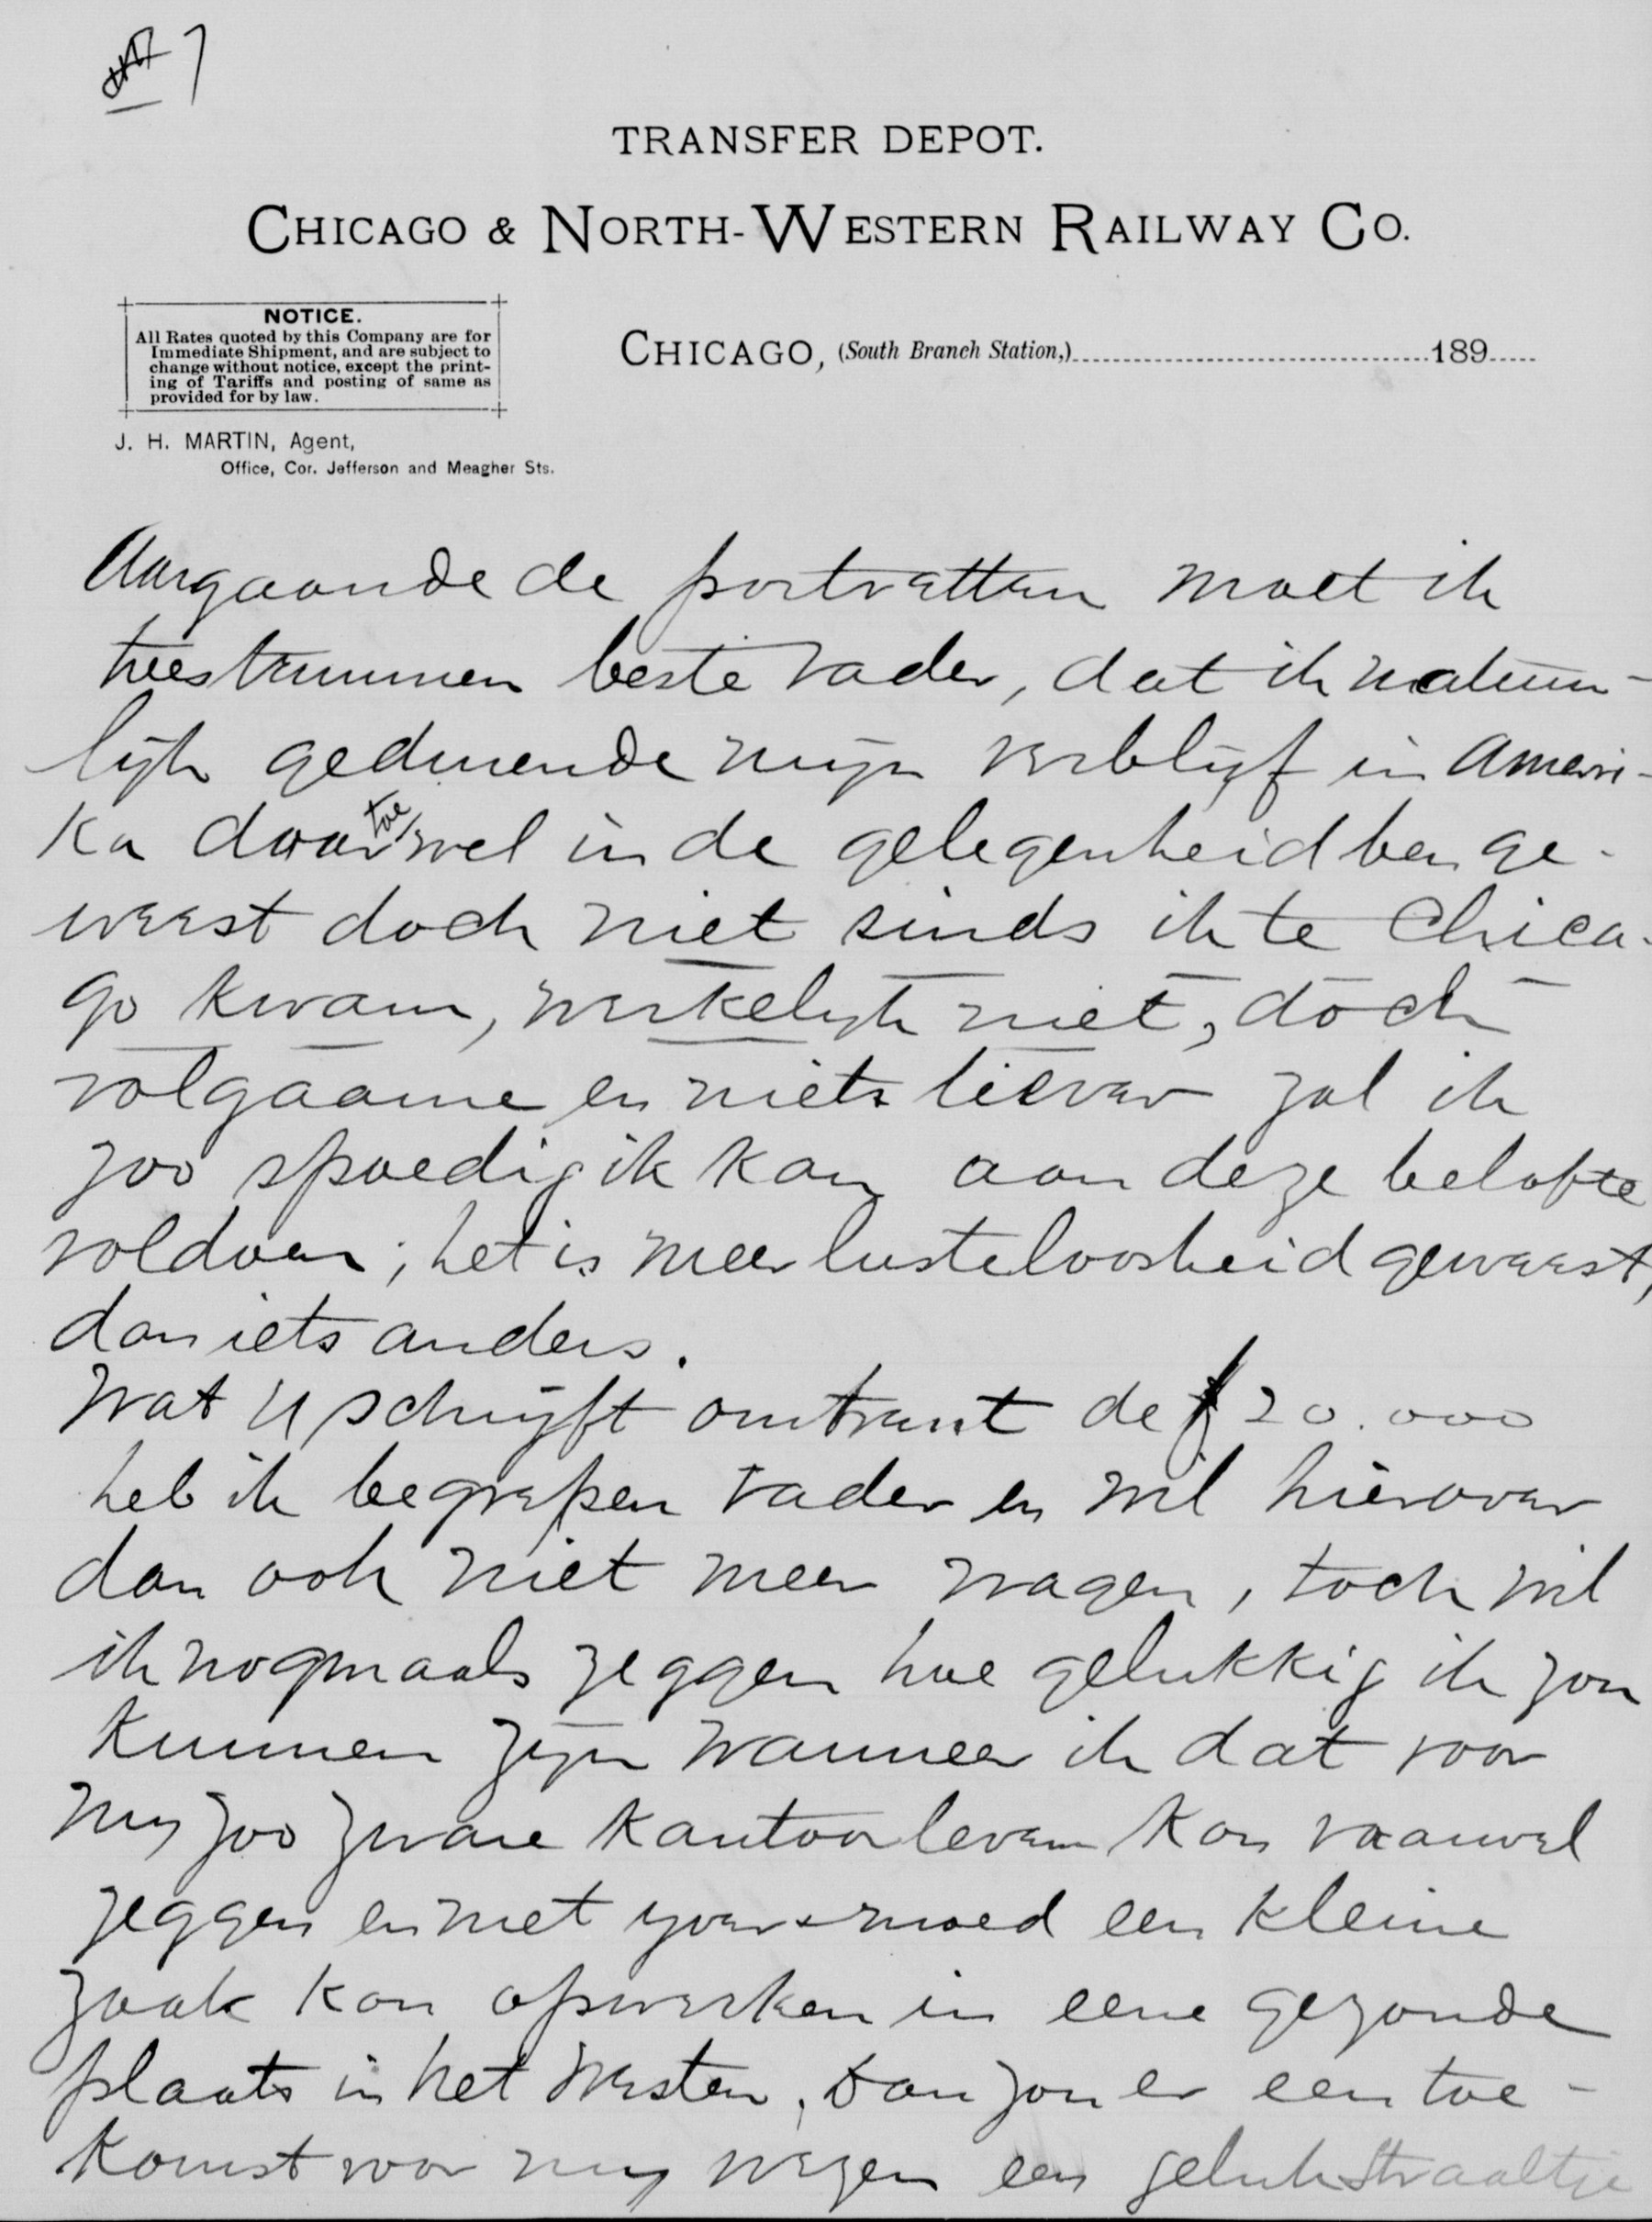 7
TRANSFER DEPOT.
CHICAGO & NORTH-WESTERN RAILWAY CO.
NOTICE.
All Rates quoted by this Company are for
Immediate Shipment, and are subject to
change without notice, except the print-
ing of Tariffs and posting of same as
provided for by law.
CHICAGO, (South Branch Station,) 189
J. H. MARTIN, Agent,
Office, Cor. Jefferson and Meagher Sts.
Aangaande de portretten moet ik
toestemmen beste Vader, dat ik natuur-
lijk gedurende mijn verblijf in Ameri-
ka daartoe wel in de gelegenheid ben ge-
weest doch niet sinds ik te Chica-
go kwam, werkelijk niet, doch
volgaarne en niets liever zal ik
zoo spoedig ik kan aan deze belofte
voldoen; het is meer lusteloosheid geweest,
dan iets anders.
Wat U schrijft omtrent de f 20.000
heb ik begrepen Vader en wil hierover
dan ook niet meer vragen, toch wil
ik nogmaals zeggen hoe gelukkig ik zou
kunnen zijn wanneer ik dat voor
mij zoo zware kantoorleven kon vaarwel
zeggen en met ijver & moed een kleine
zaak kon opwerken in eene gezonde
plaats in het Westen, dan zou er een toe-
komst voor mij wezen een gelukstraaltje